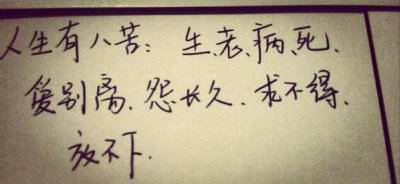 人生有八苦: 生、老、病、死、
爱别离、怨长久、求不得、
放不下.